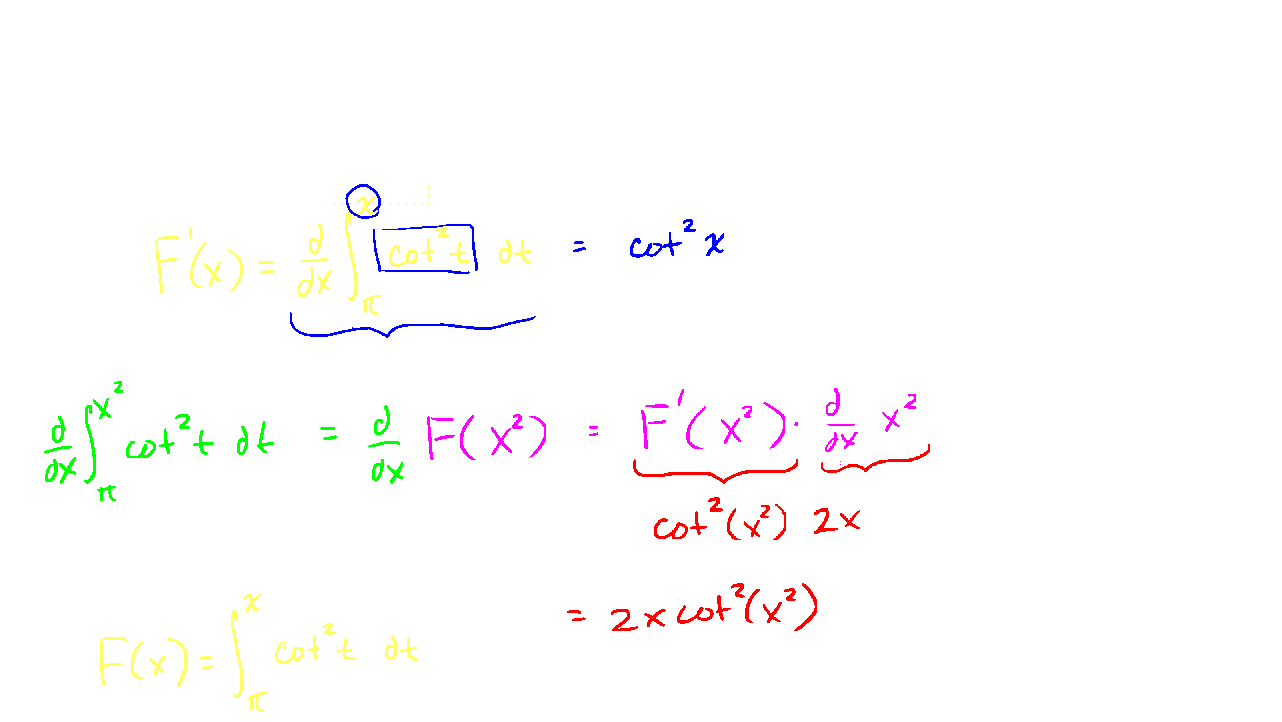 F'(x) = d/dx ∫_π^x cot² t dt = cot² x
d/dx ∫_π^x² cot² t dt = d/dx F(x²) = F'(x²) · d/dx x²
cot²(x²) 2x
= 2x cot²(x²)
F(x) = ∫_π^x cot² t dt